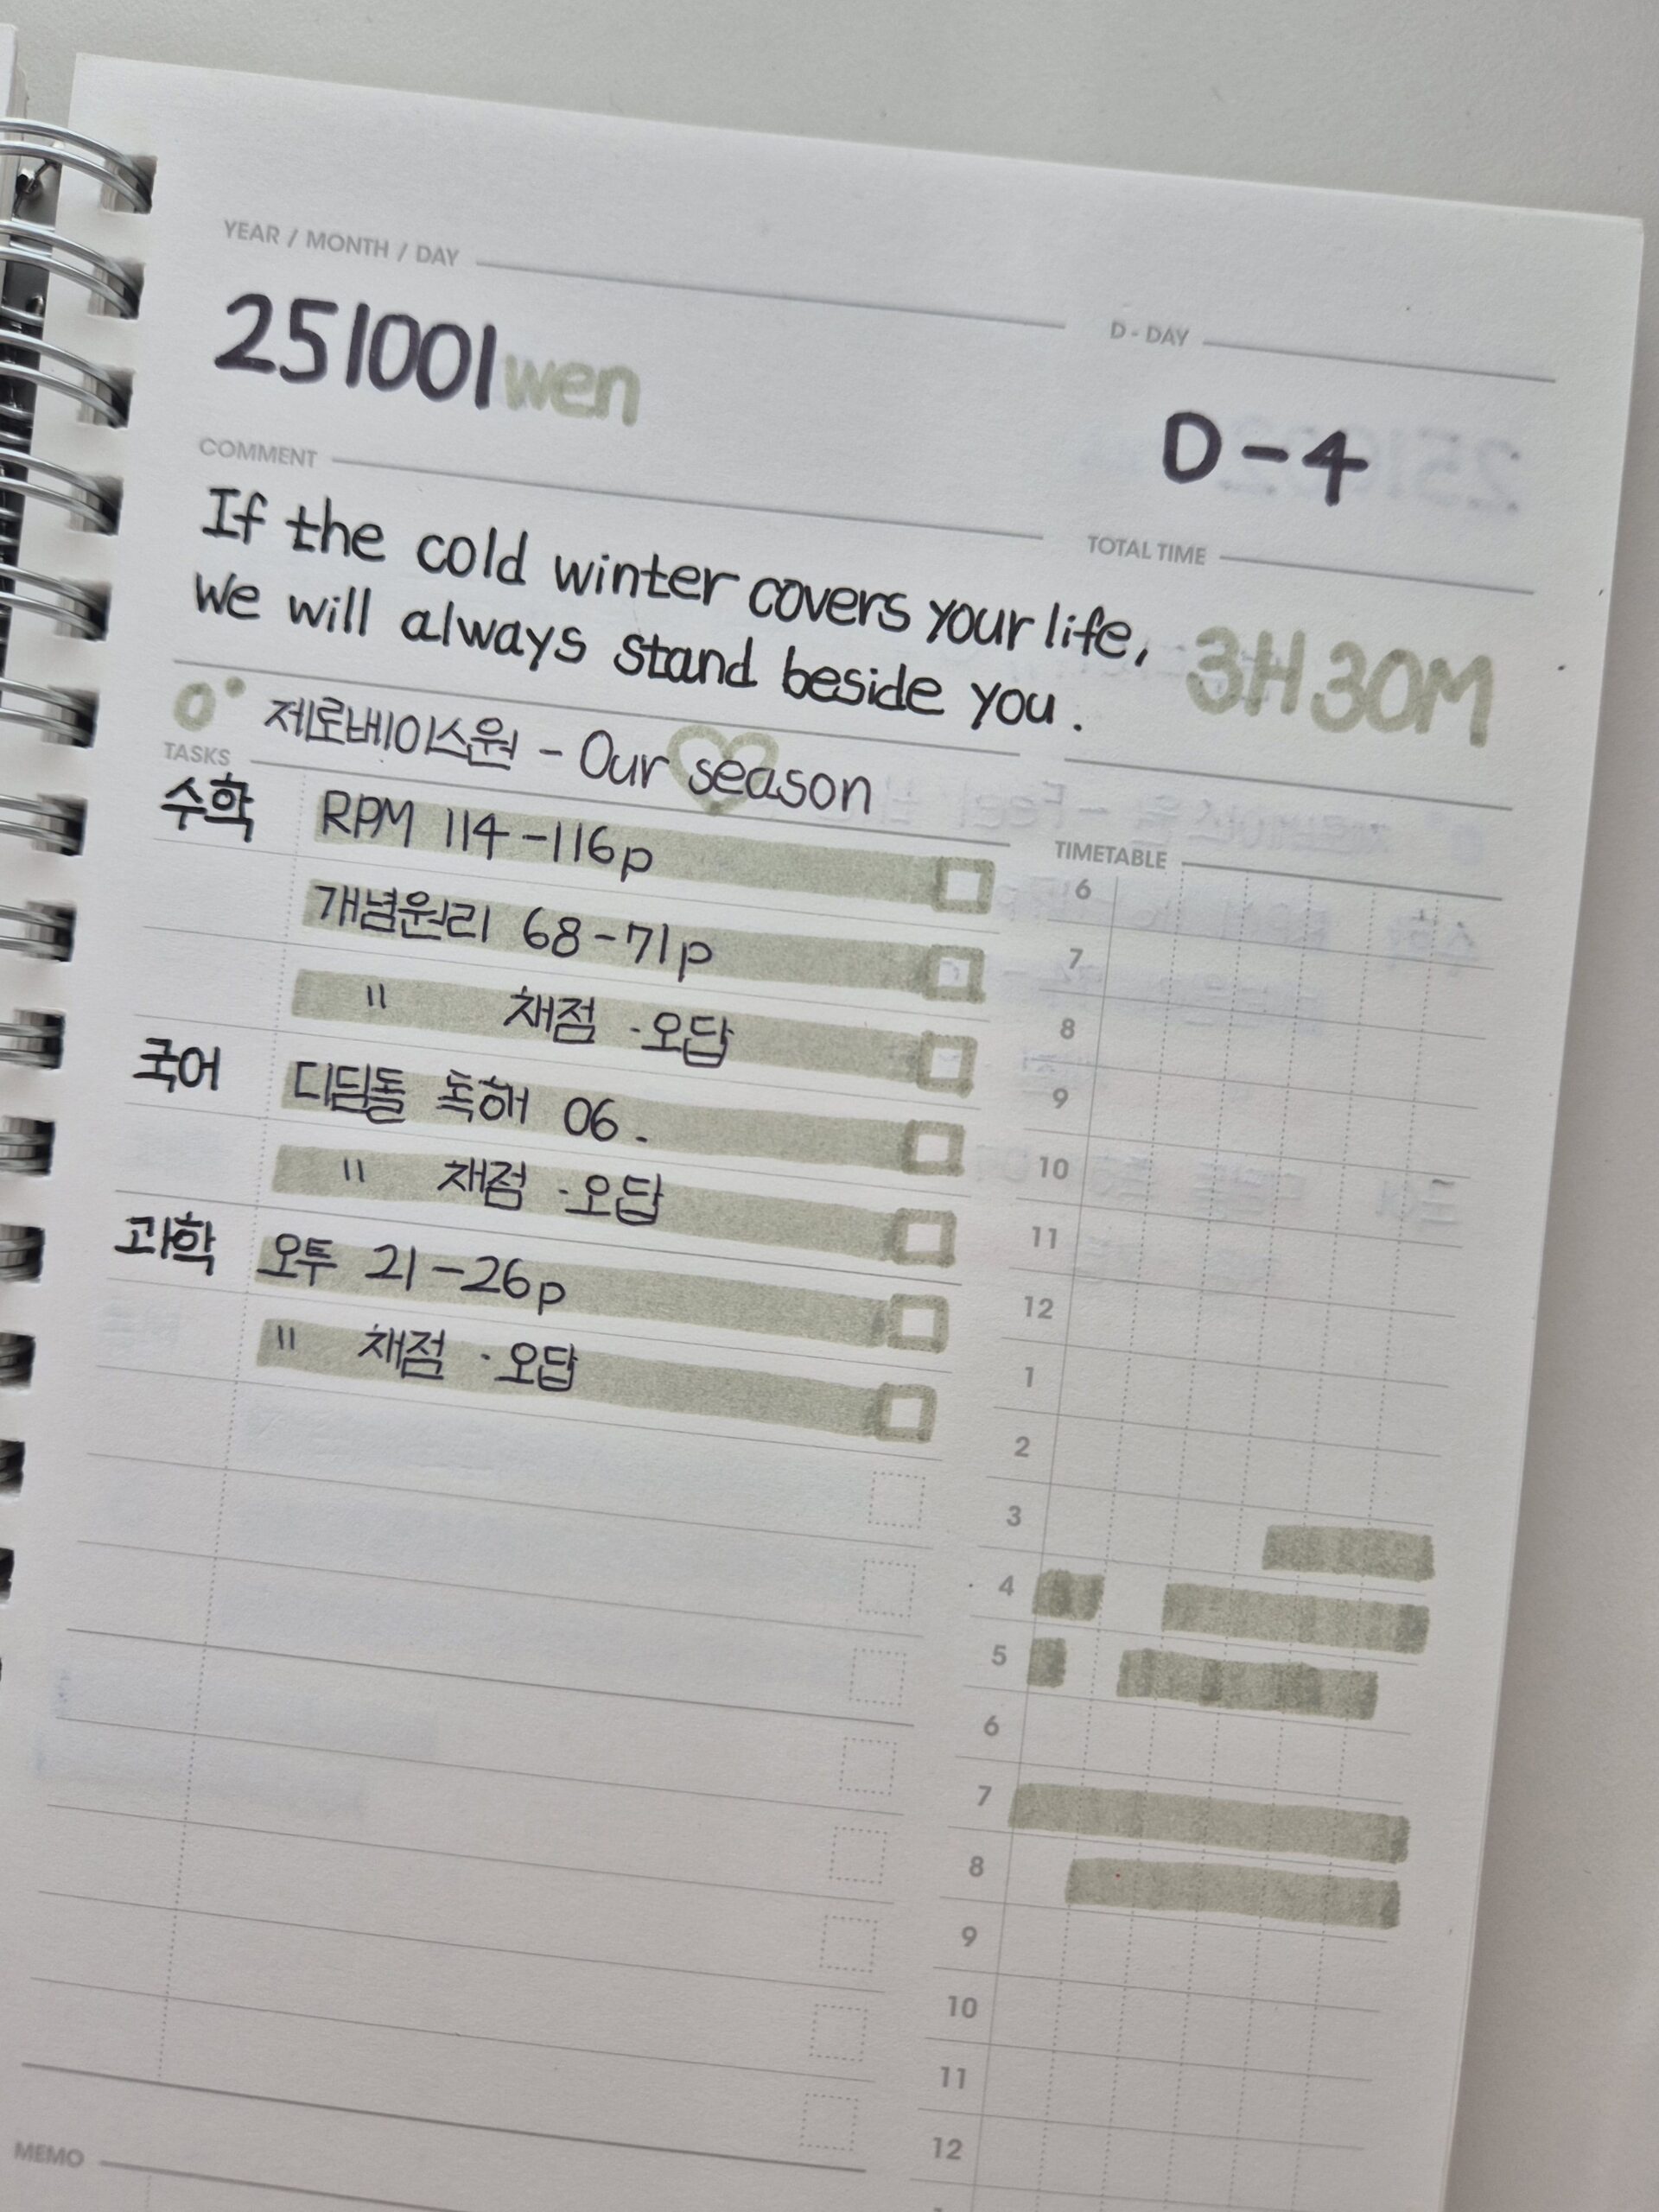 YEAR / MONTH / DAY
251001 wen
D - DAY
D-4
COMMENT
If the cold winter covers your life,
We will always stand beside you.
TOTAL TIME
3H 30M
0° 제로베이스원 - Our season
TASKS
수학 RPM 114-116p
개념원리 68-71p
" 채점 · 오답
국어 디딤돌 독해 06.
" 채점 · 오답
과학 오투 21-26p
" 채점 · 오답
TIMETABLE
6
7
8
9
10
11
12
1
2
3
4
5
6
7
8
9
10
11
12
MEMO